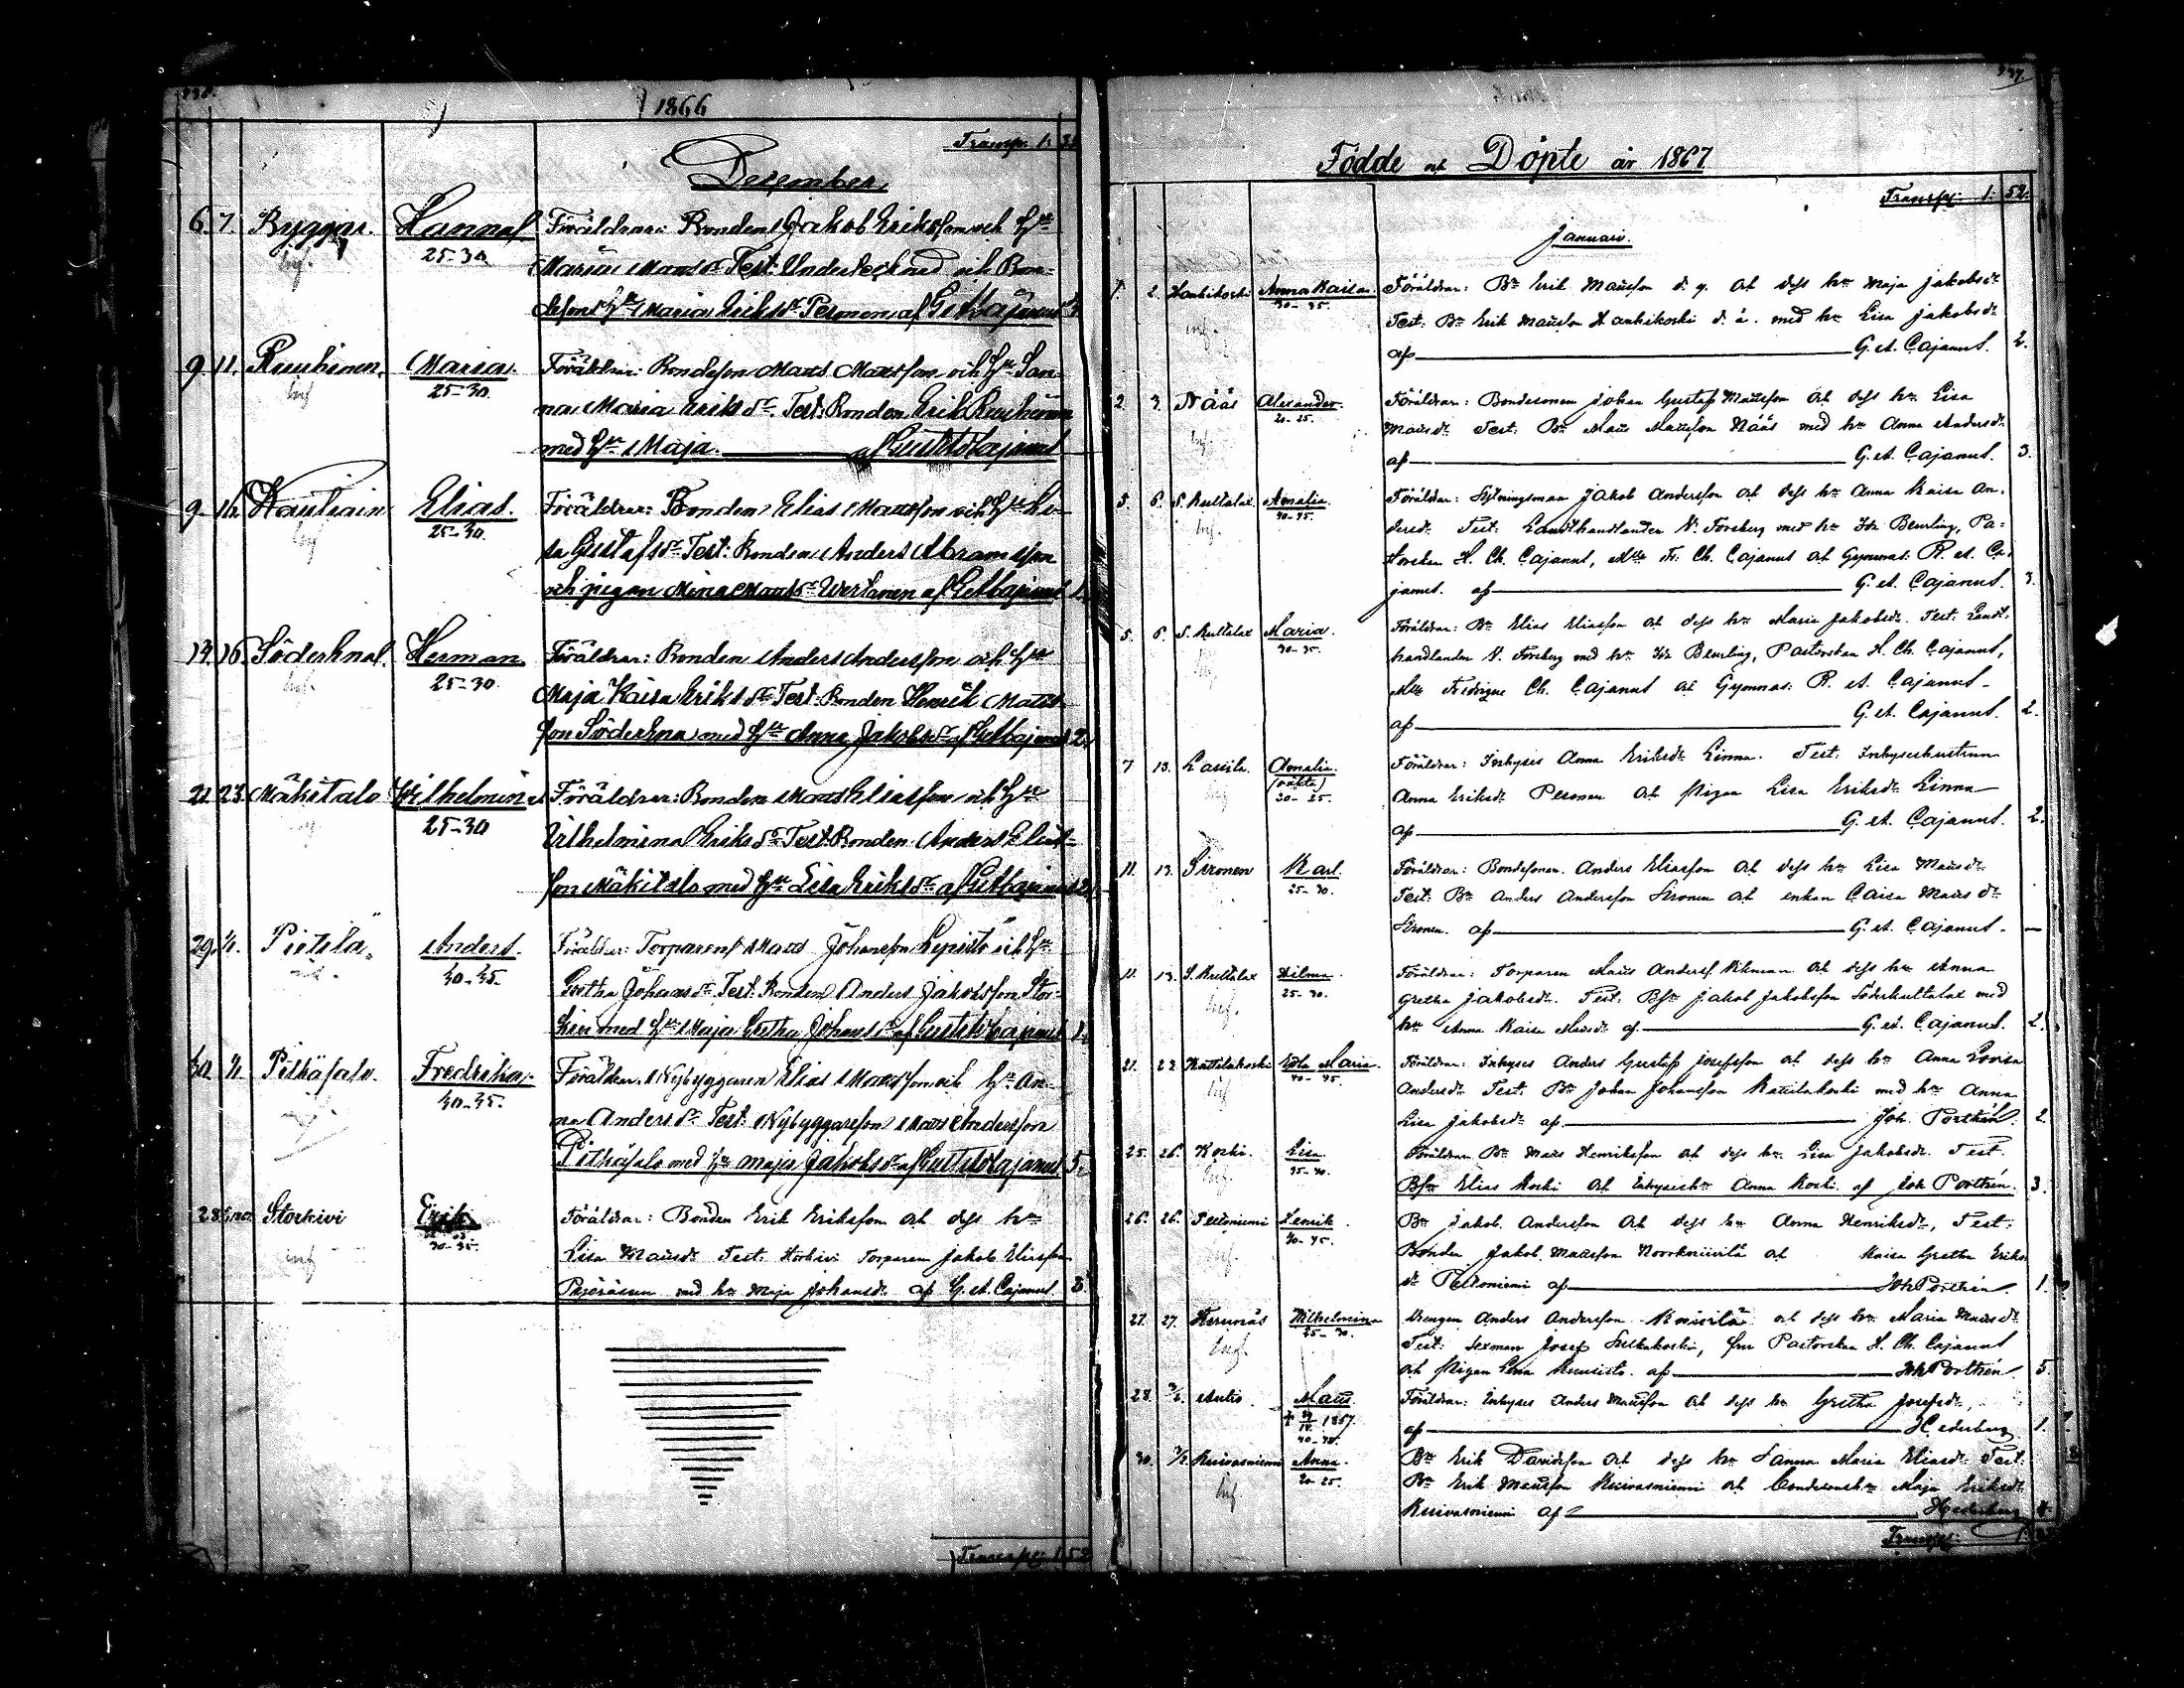 1866
Transp. 1.
December.
6. 7. Byggar. Hanna. Föräldrar: Bonden Jakob Eriksson och Hu
inf. 25-30 Maria Matsdr Test: Undertecknad och Bon-
desons Hu Maria Eriksdr Personen af G A Cajanus
9. 11. Ruuhinen. Maria. Föräldrar: Bondeson Mats Matsson och Hu San-
inf 25-30 na Maria Eriksdr. Test: Bonden Erik Ruuhinen
med Hu Maja. af Gust A Cajanus
9. 16. Elias. Föräldrar: Bonden Elias Matsson och Hu Li-
inf 25-30. sa Gustafsdr Test: Bonden Anders Abramsson
och pigan Mina Matsdr Wertanen af G A Cajanus 1.
14. 16. Söderkna. Herman. Föräldrar: Bonden Anders Andersson och Hu
inf. 25-30. Maja Kaisa Eriksdr Test: Bonden Henrik Mats-
son Söderkna med Hu Anna Jakobsdr af G A Cajanus 2.
21. 23. Mäkitalo Wilhelmina Föräldrar: Bonden Mats Eliasson och Hu
25-30 Vilhelmina Eriksdr Test: Bonden Anders Elias-
son Mäkitalo med Hu Lisa Eriksdr af G A Cajanus 2.
29. 1/1. Pietilä. Anders. Föräldrar: Torparen Mats Johansson Lepistö och Hu
40-45. Gretha Johansdr Test: Bonden Anders Jakobsson Stor-
kivi med Hu Maja Gretha Johansdr af Gust A Cajanus 1.
30. 1/1. Pitkäsalo. Fredrika. Föräldrar: Nybyggaren Elias Matsson och Hu An-
40-45. na Andersdr Test: Nybyggareson Mats Andersson
Pitkäsalo med Hu Maja Jakobsdr af Gust A Cajanus 5.
28. Storkivi Erik Föräldrar: Bonden Erik Eriksson och dess hu
inf 30-35. Lisa Matsdr Test: Storkivi Torparen Jakob Eliasson
med hu Maja Johansdr af G. A. Cajanus 3
Transp: 1. 52
Födde och Döpte år 1867
Transp: 1. 52.
Januari.
1. 2. Hankikoski Anna Kaisa. Föräldrar: Bn Erik Matsson d. y. och dess hu Maja Jakobsdr
inf. 30-35. Test: Bn Erik Matsson Hankikoski d. ä. med hu Lisa Jakobsdr
af G. A. Cajanus. 2.
2. 3. Nääs Alexander. Föräldrar: Bondesonen Johan Gustaf Matsson och dess hu Lisa
inf. 20-25. Matsdr Test: Bn Mats Matsson Nääs med hu Anna Andersdr
af G. A. Cajanus. 3.
5. 6. S. Kultalax Amalia. Föräldrar: Jakob Andersson och dess hu Anna Kaisa An-
inf. 40-45. dersdr Test: Landthandlanden N. Forsberg med hu Ida Beurling, Pa-
storskan H. Ch. Cajanus, Mlle Fr. Ch. Cajanus och Gymnas: R. A. Ca-
janus. af G. A. Cajanus. 3.
5. 6. S. Kultalax Maria. Föräldrar: Bn Elias Eliasson och dess hu Maria Jakobsdr. Test: Landt-
30-35. handlanden N. Forsberg med hu Ida Beurling, Pastorskan H. Ch. Cajanus,
Mlle Fredrique Ch. Cajanus och Gymnas: R. A. Cajanus
af G. A. Cajanus. 2.
7 13. Lassila. Amalia. Föräldrar: Inhyses Anna Eriksdr Linna. Test: Inhyseshustrun
inf (oäkta) 20-25. Anna Eriksdr Pesonen och Pigan Lisa Eriksdr Linna
af G. A. Cajanus. 2.
11. 13. Sironen Karl. Föräldrar: Bondesonen Anders Eliasson och dess hu Lisa Matsdr
25-30. Test: Bn Anders Andersson Sironen och enkan Caisa Matsdr
Sironen. af G. A. Cajanus.
11. 13. S. Kultalax Hilma. Föräldrar: Torparen Mats Anderss. och dess hu Anna
inf. 25-30. Gretha Jakobsdr. Test: Bsn Jakob Jakobsson Söderkultalax med
hu Anna Kaisa Matsdr af G. A. Cajanus. 2.
21. 22. Kattilakoski Eda Maria. Föräldrar: Inhyses Anders Gustaf Josefsson och dess hu Anna Lovisa
inf 40-45. Andersdr Test: Bn Johan Johansson Kattilakoski med hu Anna
Lisa Jakobsdr af Joh. Porthén. 2.
25. 26. Koski. Lisa Föräldrar Bn Mats Henriksson och dess hu Lisa Jakobsdr. Test.
inf. 35-40. Bsn Elias Koski och Inhyseshu Anna Koski. af Joh Porthén. 3.
26. 26. Peltoniemi Henrik. Bn Jakob Andersson och dess hu Anna Henriksdr, Test:
inf. 40-45. Bonden Jakob Matsson och Kaisa Gretha Eriks
dr Peltoniemi af Joh Porthén. 1.
27. 27. Wilhelmina Drengen Anders Andersson och dess hu Maria Matsdr
inf. 25-30. Test: Sexman Josef, fru Pastorskan H. Ch. Cajanus
och Pigan Lena af Joh Porthén 5.
28. Autio. Mats. Föräldrar: Inhyses Anders Matsson och dess hu Gretha Josefsdr,
af Hederberg 1.
30. Kuivasniemi Anna. Bn Erik Davidsson och dess hu Sanna Maria Eliasdr Test.
inf. 20-25. Bn Erik Matsson Kuivasniemi och Bondesonshu Maja Eriksdr
Kuivasniemi af Hederberg 4.
Transp: 1.